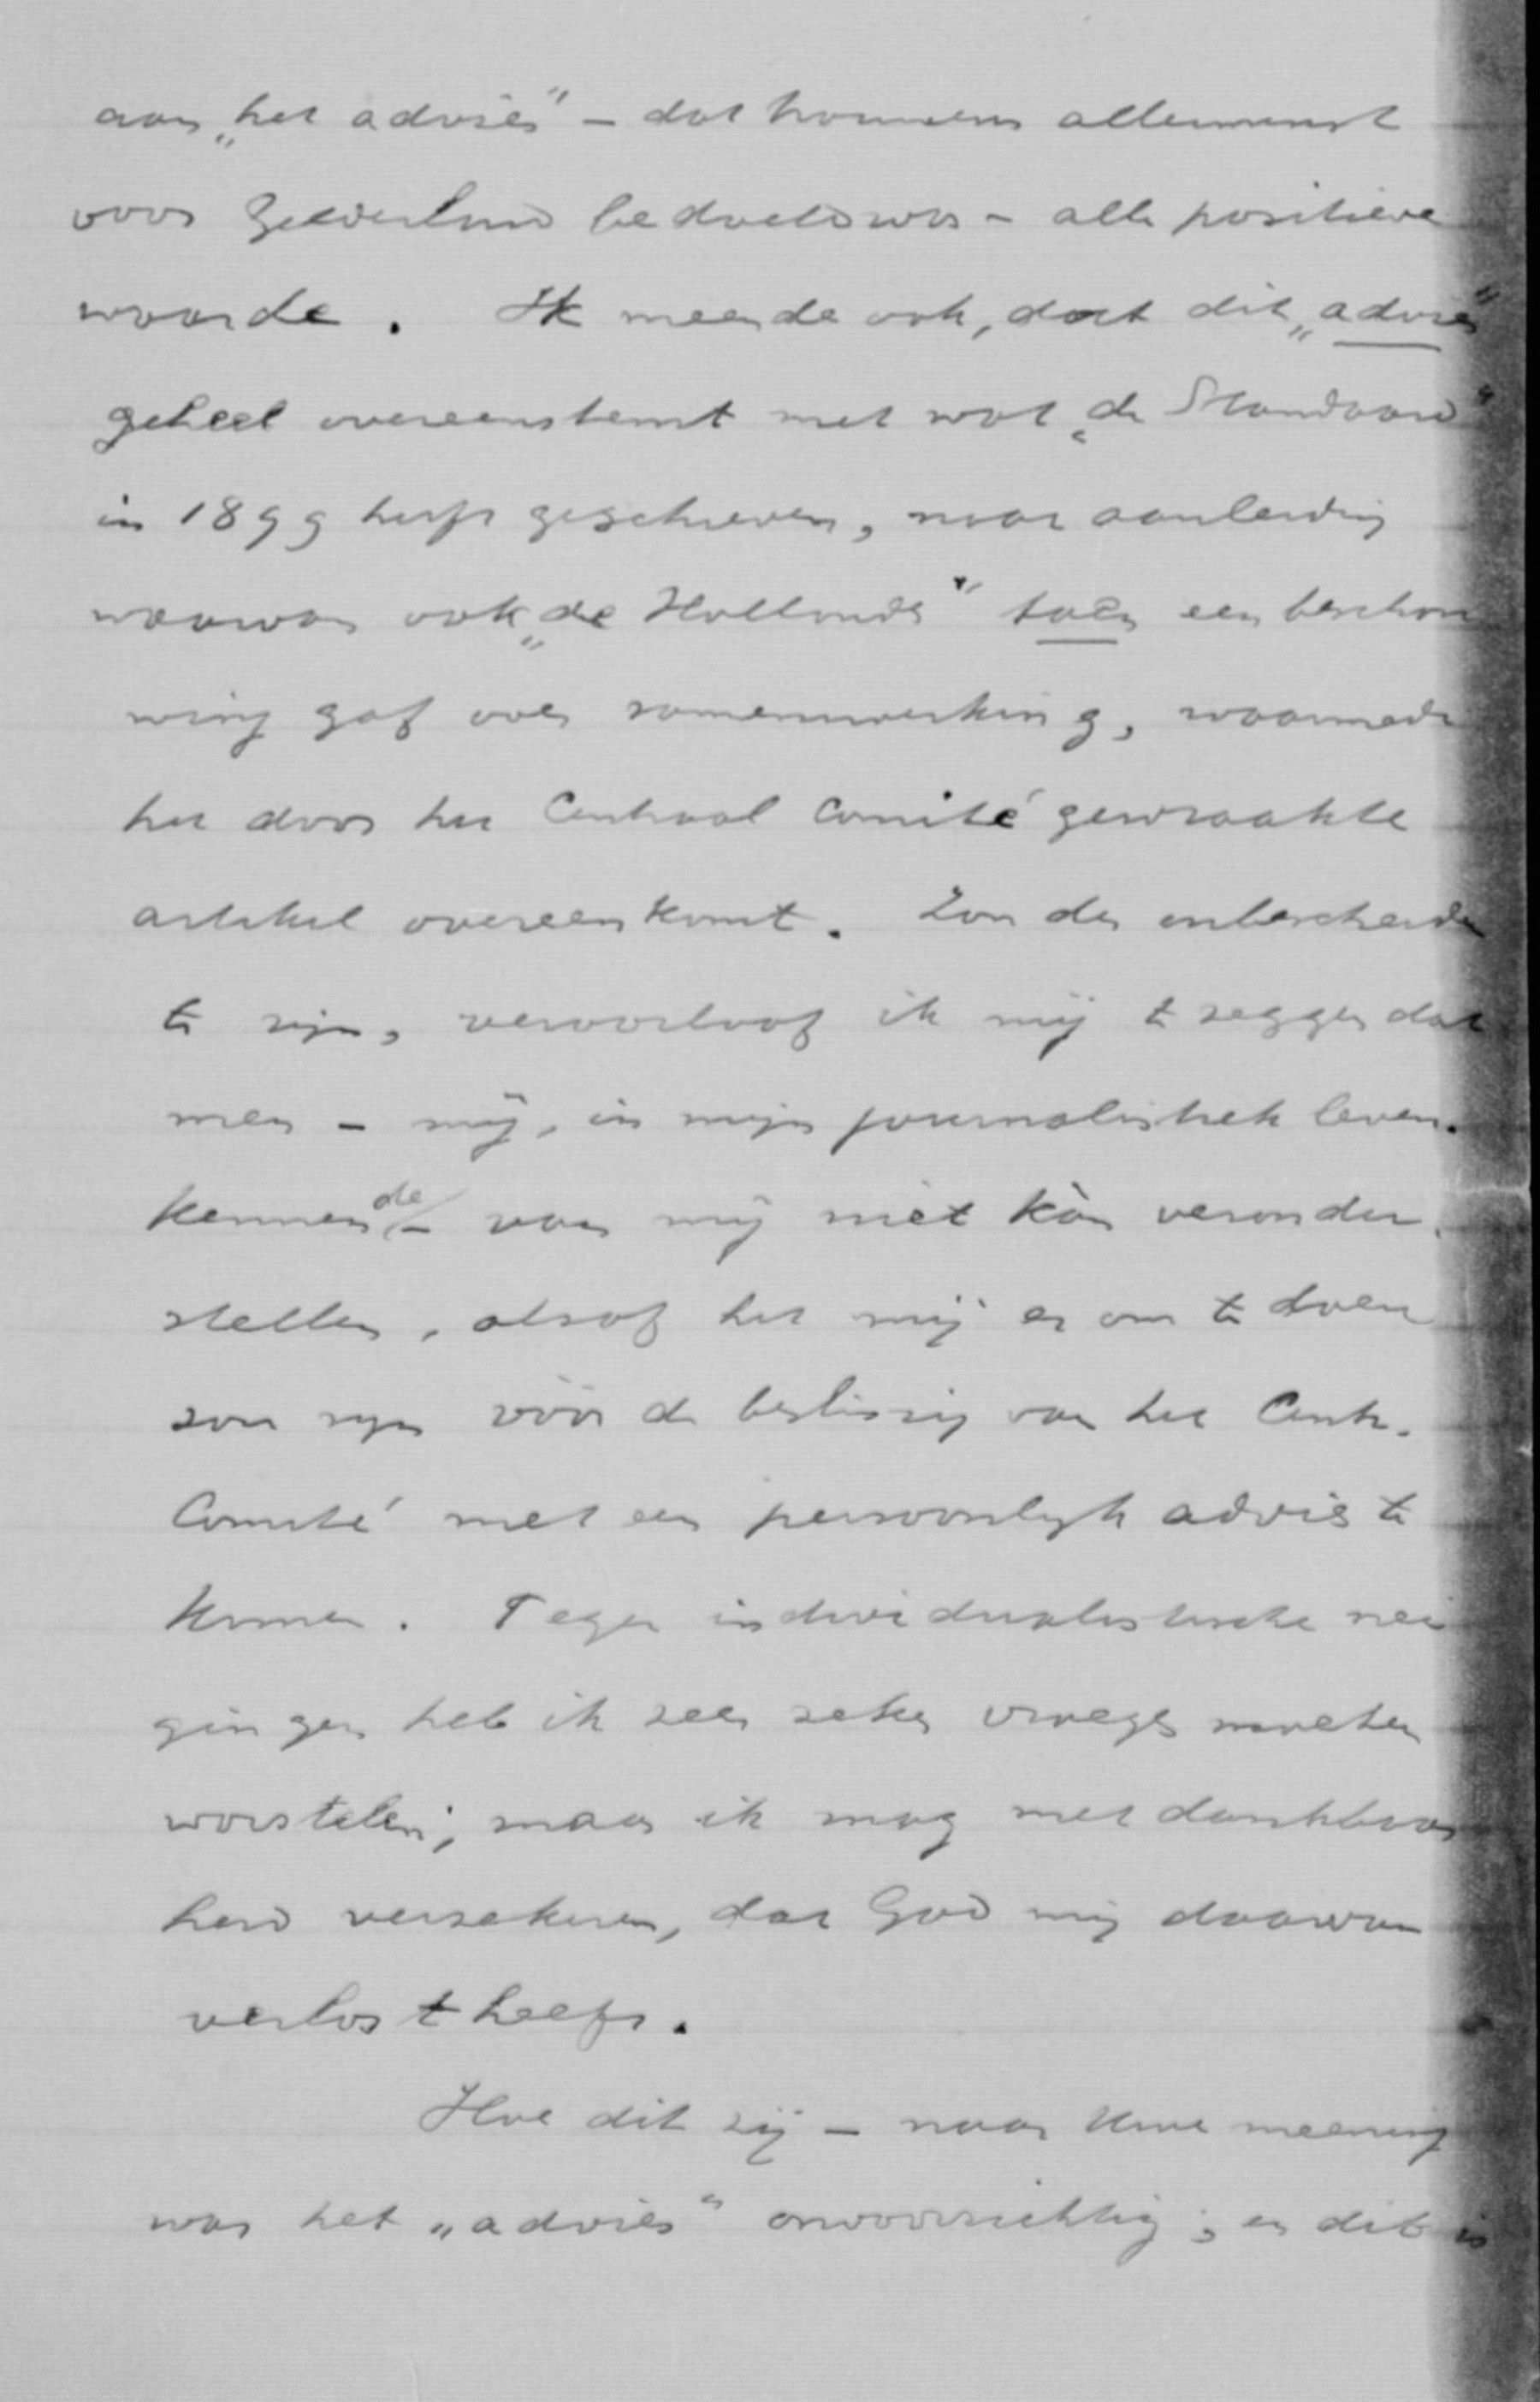 aan „het advies” – dat trouwens allerminst
voor Gelderland bedoeld was – alle positieve
waarde. Ik meende ook, dat dit „advies”
geheel overeenstemt met wat „de Standaard”
in 1899 heeft geschreven, naar aanleiding
waarvan ook „de Hollander” toen een beschou
wing gaf over samenwerking, waarmede
het door het Centraal Comité gewraakte
artikel overeenkomt. Zonder onbescheiden
te zijn, veroorloof ik mij te zeggen dat
men – mij, in mijn journalistiek leven
kennende – van mij niet kàn veronder
stellen, alsof het mij er om te doen
zou zijn vóór de beslissing van het Centr.
Comité met een persoonlijk advies te
komen. Tegen individualistische nei
gingen heb ik zeer zeker vroeger moeten
worstelen; maar ik mag met dankbaar
heid verzekeren, dat God mij daarvan
verlost heeft.
Hoe dit zij – naar Uwe meening
was het „advies” onvoorzichtig; en dit is